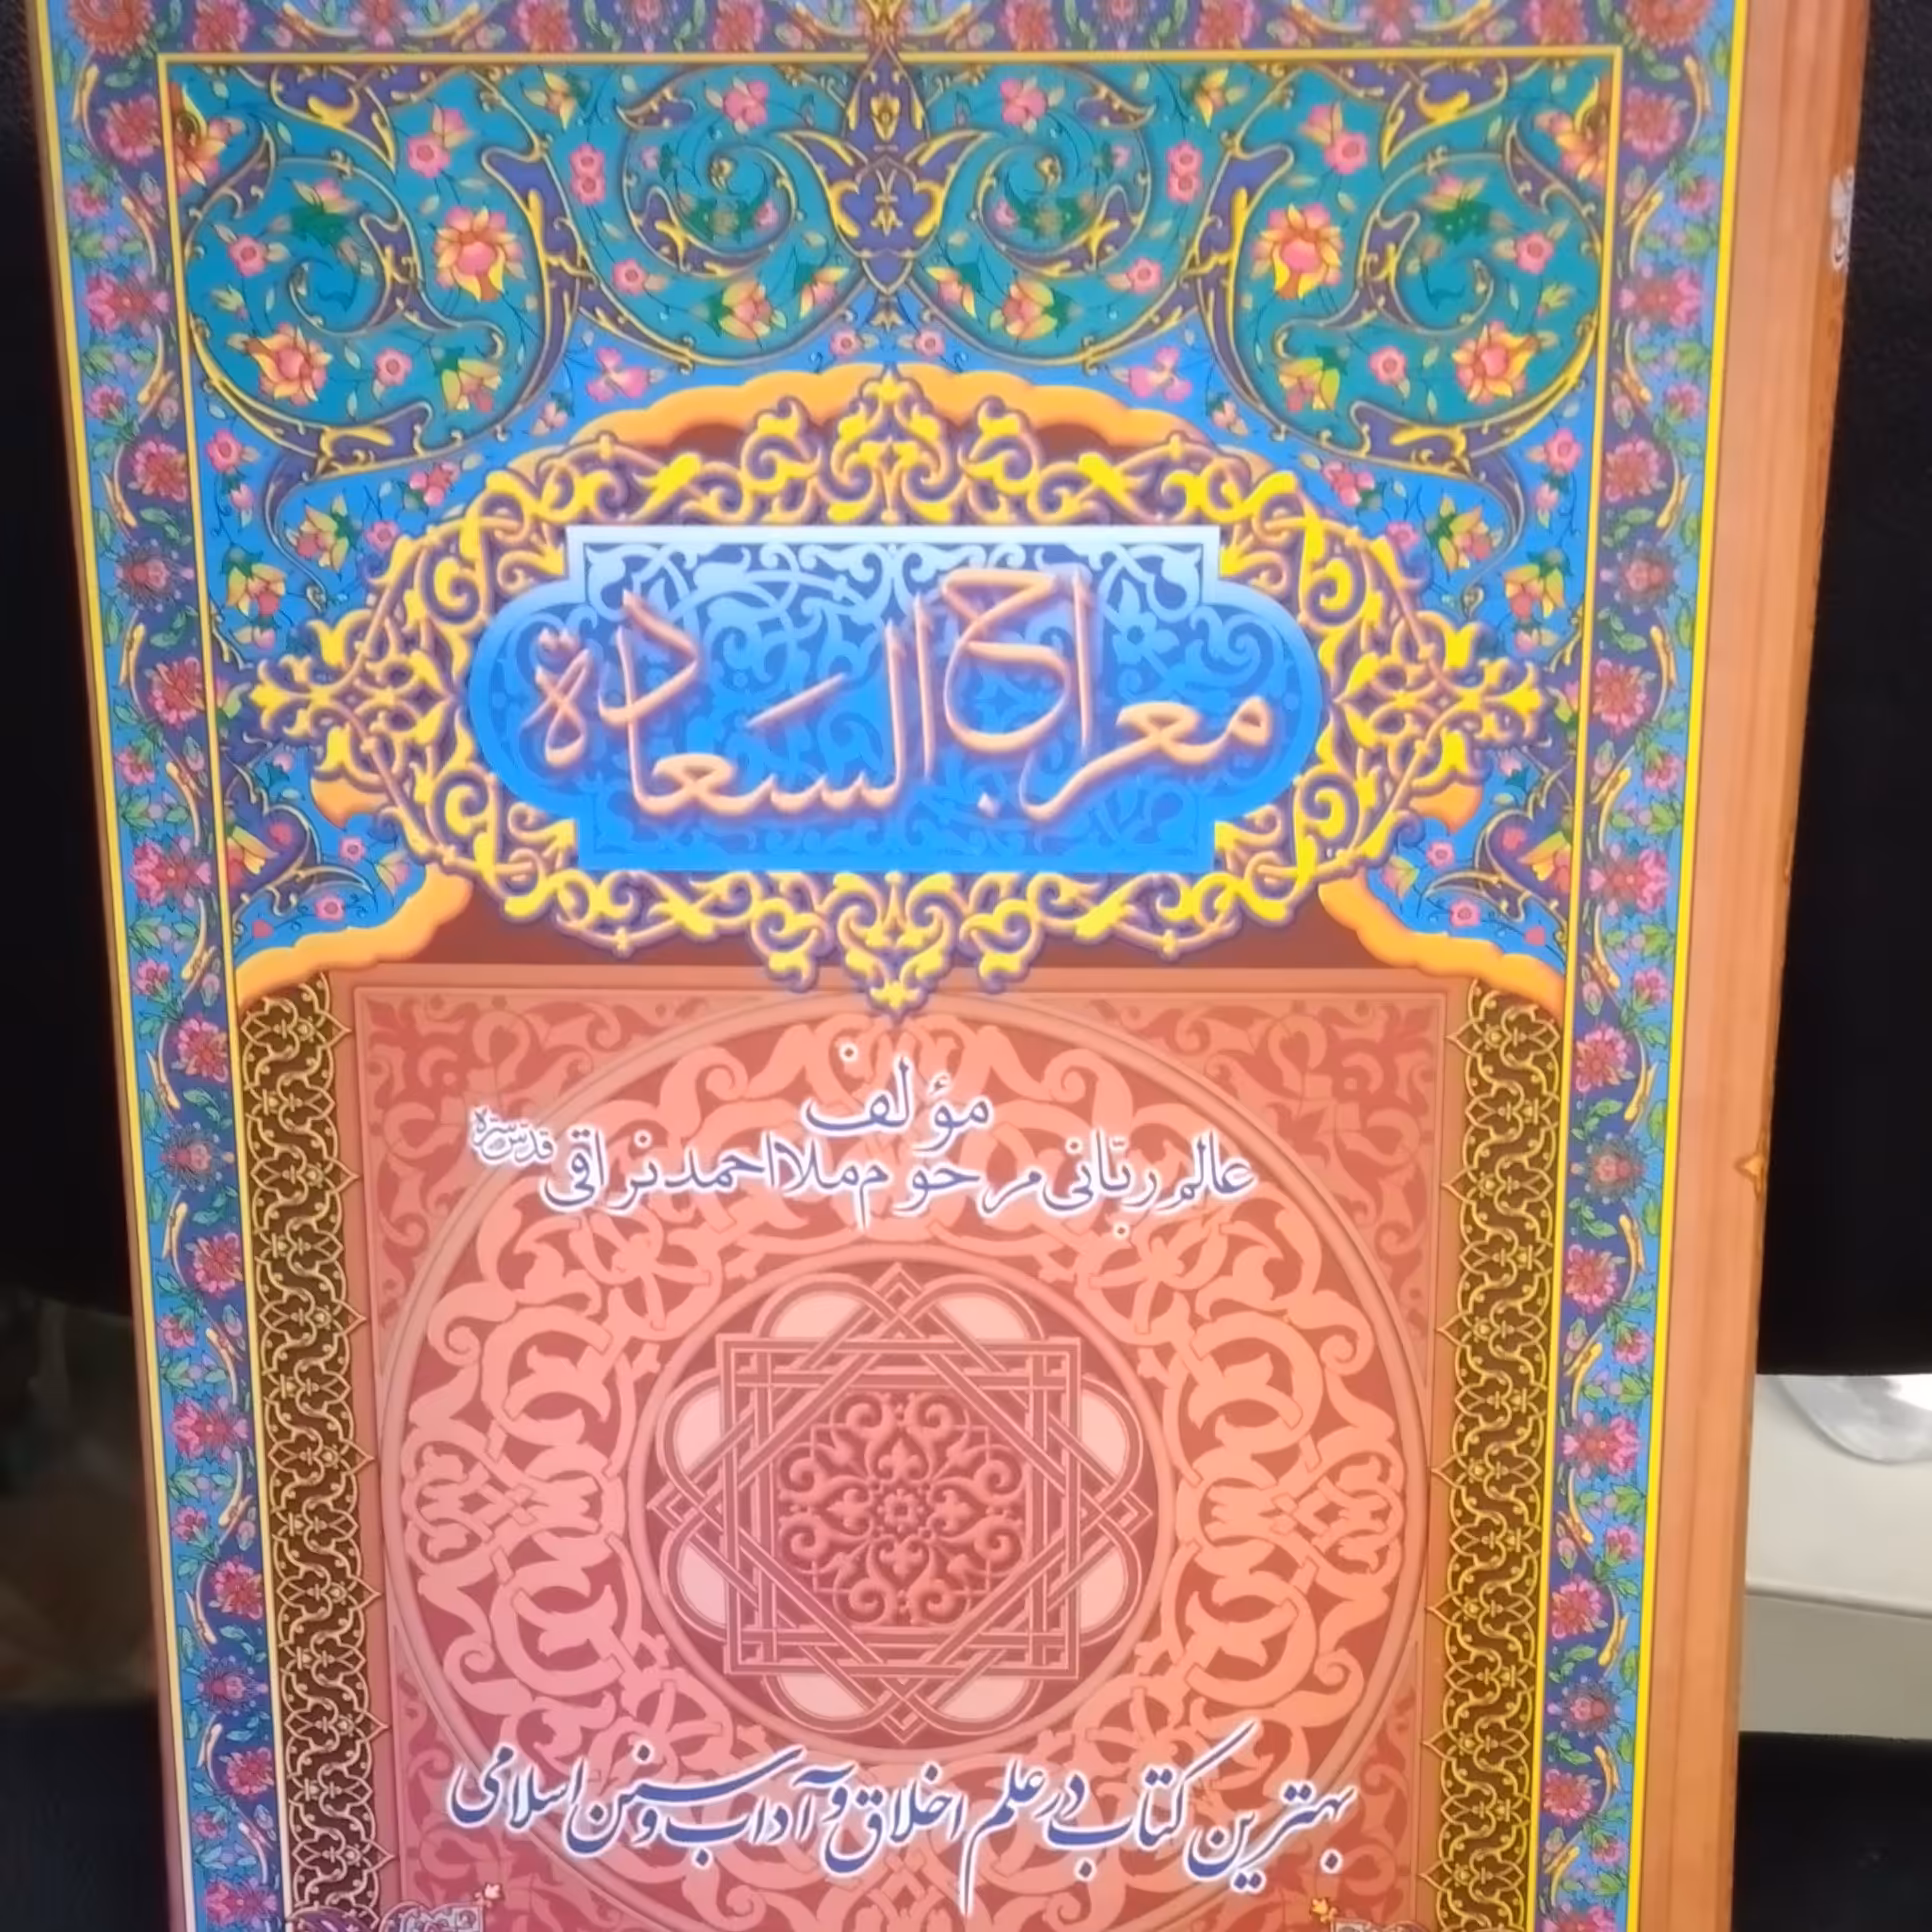 معراج السَعادة
مؤلف
عالم ربّانی مرحوم ملا احمد نراقی قدّس سرّه
بهترین کتاب در علم اخلاق و آداب و سنن اسلامی